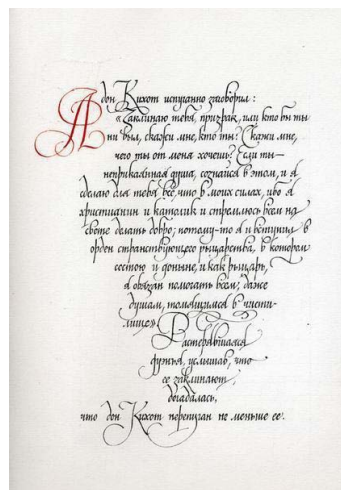 А дон Кихот испуганно заговорил:
«Заклинаю тебя, призрак, или кто бы ты
ни был, скажи мне, кто ты? Скажи мне,
чего ты от меня хочешь? Если ты —
неприкаянная душа, сознайся в этом, и я
сделаю для тебя всё, что в моих силах, ибо я
христианин и католик и стремлюсь всем на
свете делать добро; потому-то я и вступил в
орден странствующего рыцарства, в котором
состою и доныне, и как рыцарь,
я обязан помогать всем; даже
душам, томящимся в чисти-
лище».  Растерявшаяся
дуэнья, услышав, что
ее заклинают,
догадалась,
что дон Кихот перепуган не меньше ее.